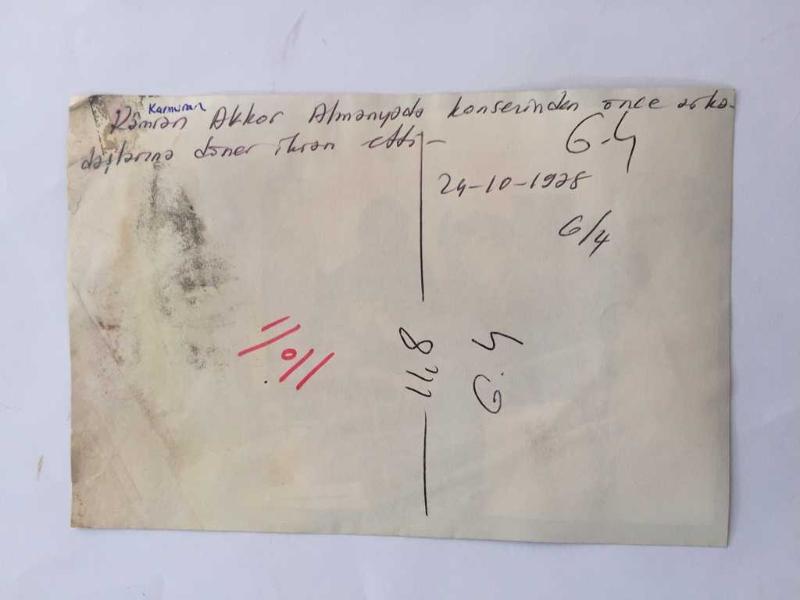 Kamuran
Kâmran Akkor Almanyada konserinden önce arka-
daşlarına döner ikram etti -
G-4
24-10-1978
G/4
11,8
G.4